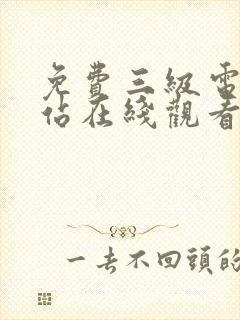 免費三級電
佔在綫觀看
一去不回頭的